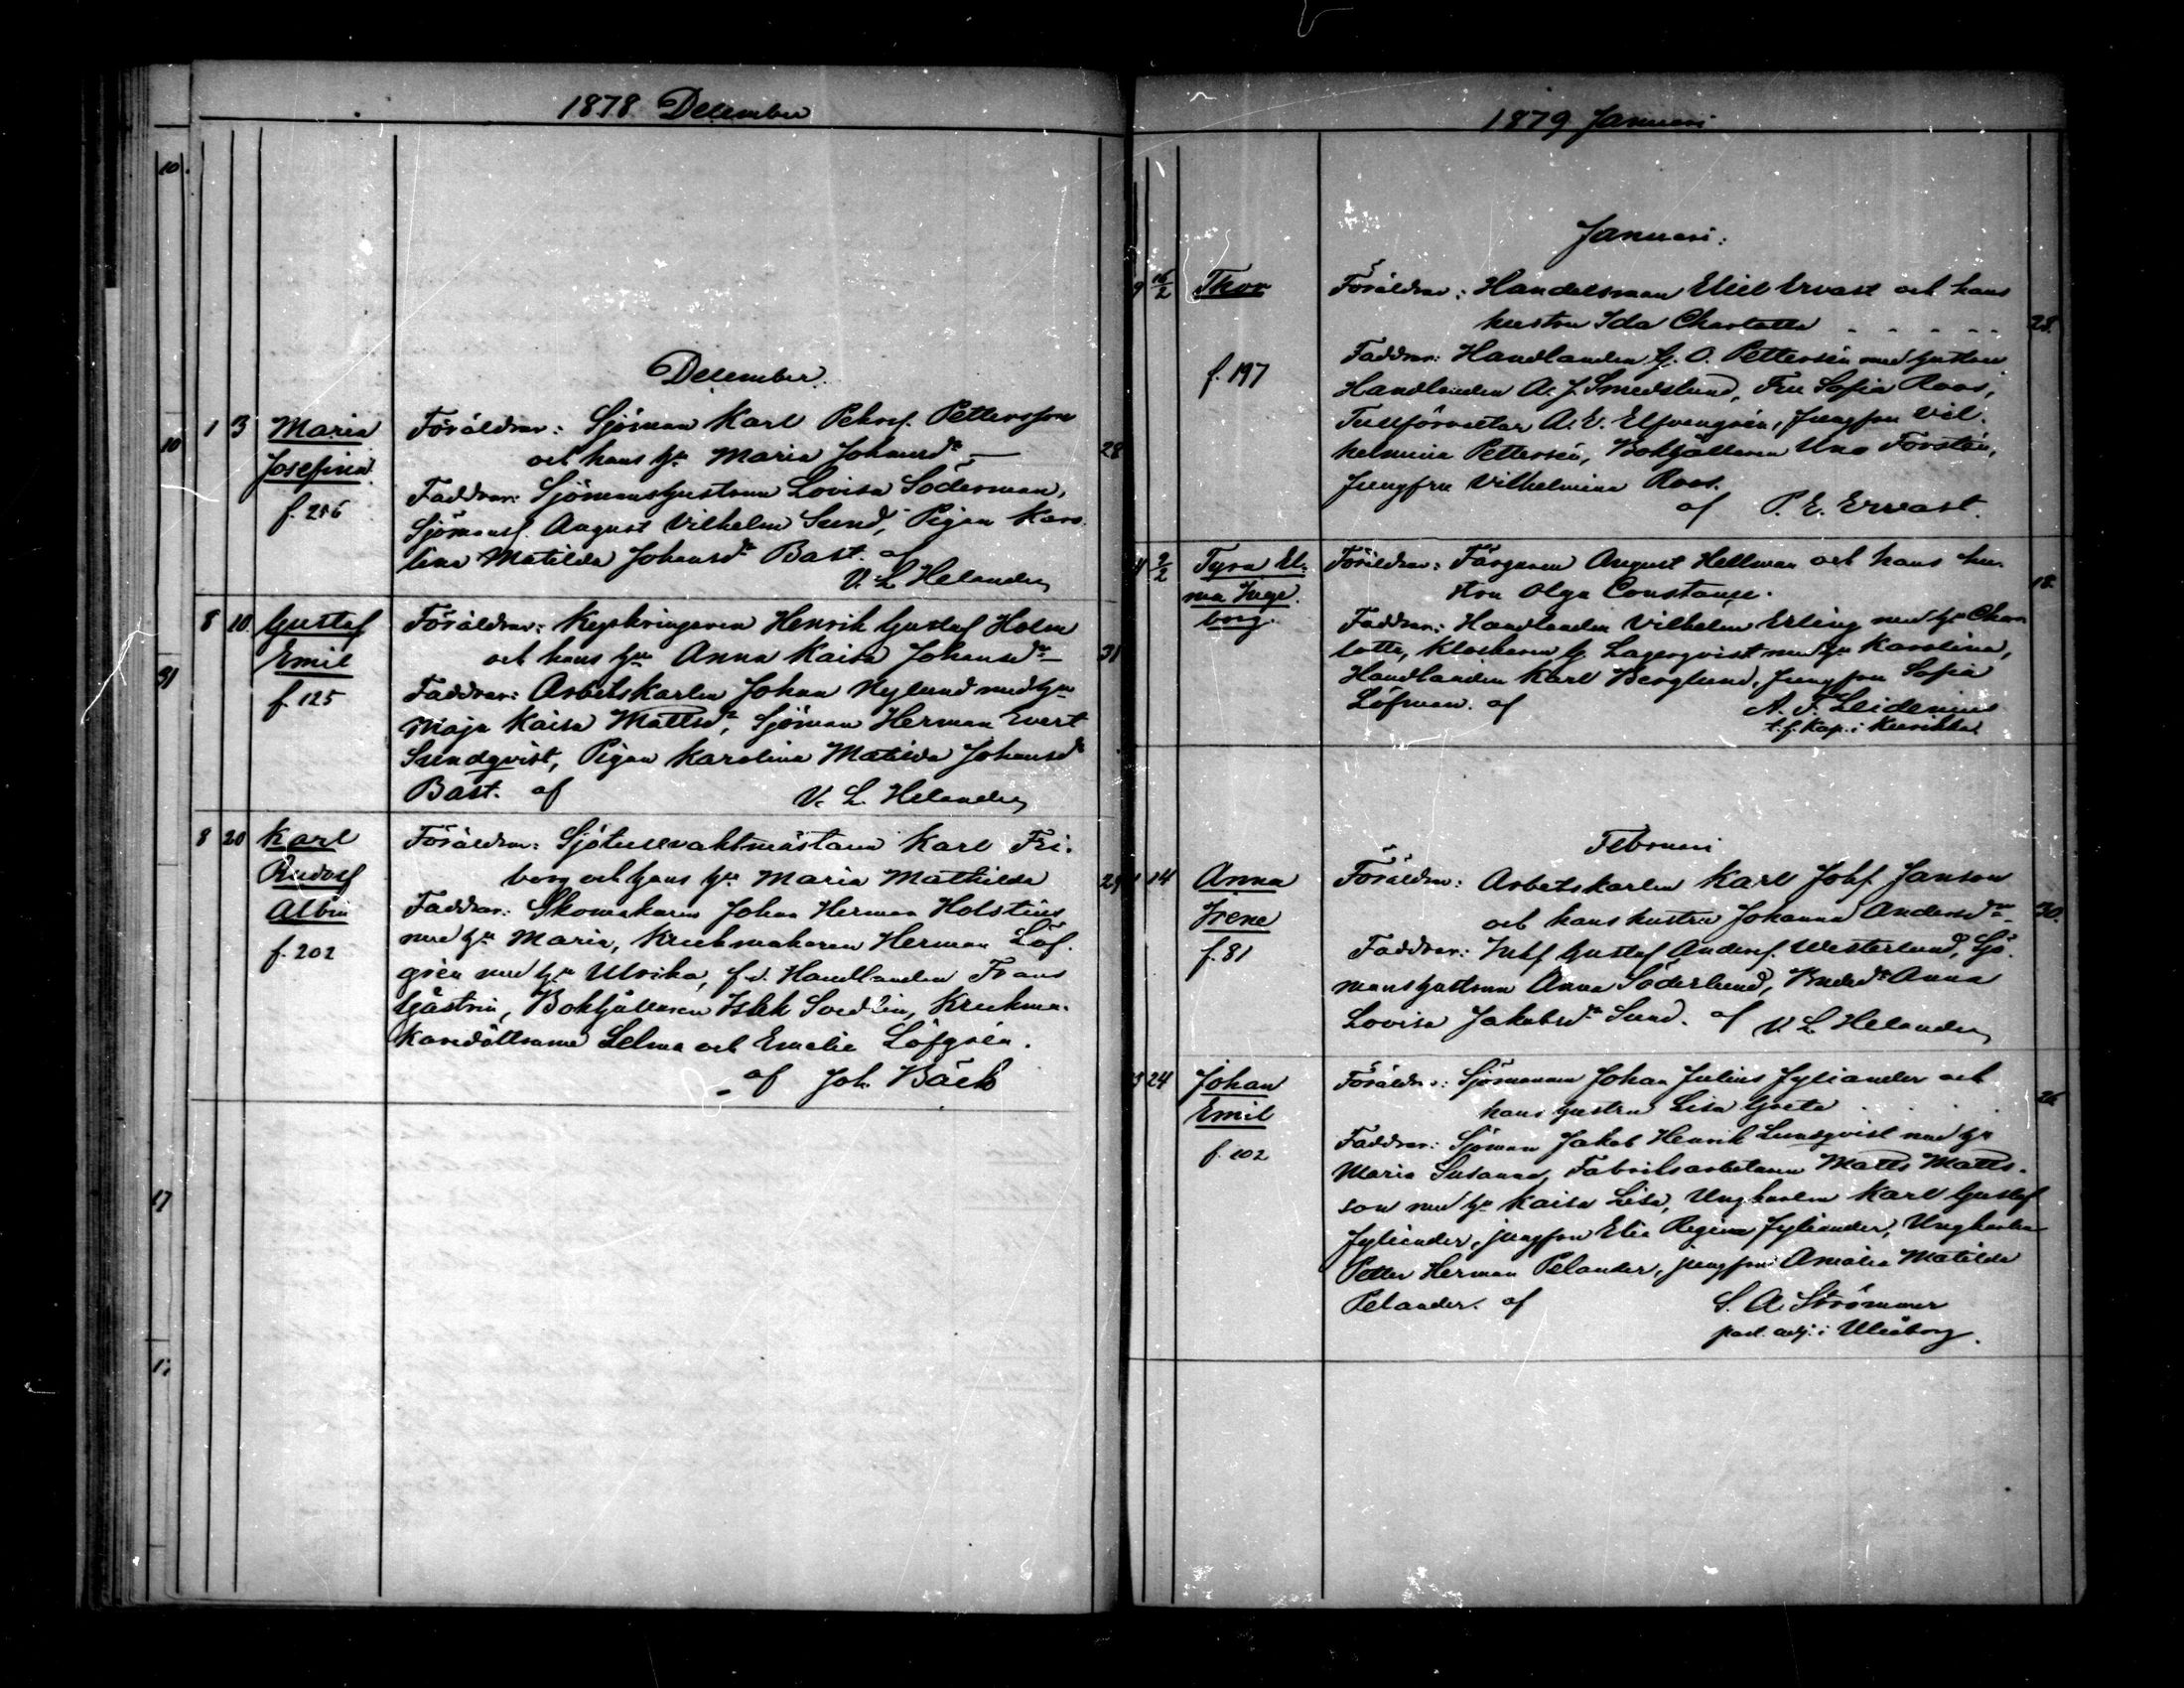 1878 December
December.
1 3 Maria Föräldrar: Sjöman Karl Petersf. Pettersson
Josefina och hans hu Maria Johansdr 28
f. 216 Faddrar: Sjömanshustrun Lovisa Söderman,
Sjömansf. August Vilhelm Sund, Pigan Karo-
lina Matilda Johansdr Bast. af
V. L. Helander
8 10 Gustaf Föräldrar: Kypkringaren Henrik Gustaf Holm
Emil och hans hu Anna Kaisa Johansdr 31
f. 125 Faddrar: Arbetskarlen Johan Nylund med hu
Maja Kaisa Mattsdr, Sjöman Herman Evert
Sundqvist, Pigan Karolina Matilda Johansdr
Bast. af V. L. Helander
8 20 Karl Föräldrar: Sjötullvaktmästaren Karl Fri-
Rudolf berg och hans hu Maria Mathilda 29
Albin Faddrar: Skomakaren Johan Herman Holstius
f. 202 med hu Maria, Krukmakaren Herman Löf-
grén med hu Ulrika, f.d. Handlanden Frans
Hästrin, Bokhållaren Isak Svedlin, Krukma-
karedöttrarna Selma och Emelie Löfgrén.
af Joh. Bäck
1879 Januari
Januari:
9 16/2 Thor Föräldrar: Handelsman Eliel Ervast och hans
hustru Ida Charlotta 28.
f. 197 Faddrar: Handlanden G. O. Pettersén med hustru
Handlanden A. J. Smedslund, Fru Sofia Roos,
Tullförvaltar A. E. Elfvengrén, Jungfru Vil-
helmina Pettersén, Bokhållaren Uno Forstén,
Jungfru Vilhelmina Roos.
af P. E. Ervast.
9/2 Tyra El- Föräldrar: Färgaren August Hellman och hans hu-
ma Inge- stru Olga Constance. 18.
borg. Faddrar: Handlanden Vilhelm Erling med hu Char-
lotta, Klockaren G. Lagerqvist med hu Karolina,
Handlanden Karl Berglund, Jungfru Sofia
Löfman. af A. F. Leidenius
t.f. Kap. i Kuivikka
Februari
14 Anna Föräldrar: Arbetskarlen Karl Johf Janson
Irene och hans hustru Johanna Andersdr 30.
f. 81 Faddrar: Inhf Gustaf Andersf. Westerlund, Sjö-
manshustrun Anna Söderlund, Anna
Lovisa Jakobsdr Sund. af V. L. Helander
3 24 Johan Föräldrar: Sjömannen Johan Julius Jyliander och
Emil hans hustru Lisa Greta 26
f. 102 Faddrar: Sjöman Jakob Henrik Lundqvist med hu
Maria Susanna, Fabriksarbetaren Matts Matts-
son med hu Kaisa Lisa, Ungkarlen Karl Gustaf
Jyliander, jungfru Elia Regina Jyliander, Ungkarlen
Petter Herman Pelander, jungfru Amalia Matilda
Pelander. af S. A. Strömmer
past. adj. i Uleåborg.